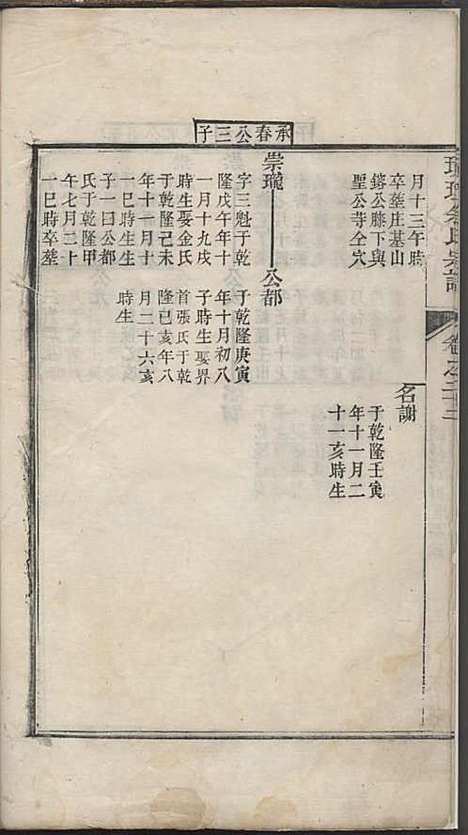 氏宗譜
卷之二十
承春公三子
月十三午時
卒葬庄基山
鎔公滕下與
聖公寺仝穴
名謝
于乾隆壬寅
年十一月二
十一亥時生
崇瓏
字三魁于乾
隆戊午年十
一月十九戌
時生娶金氏
于乾隆己未
年十一月十
一巳時生生
子一曰公都
氏于乾隆甲
午七月二十
一巳時卒葬
公都
于乾隆庚寅
年十月初八
子時生娶界
首張氏于乾
隆己亥年八
月二十六亥
時生